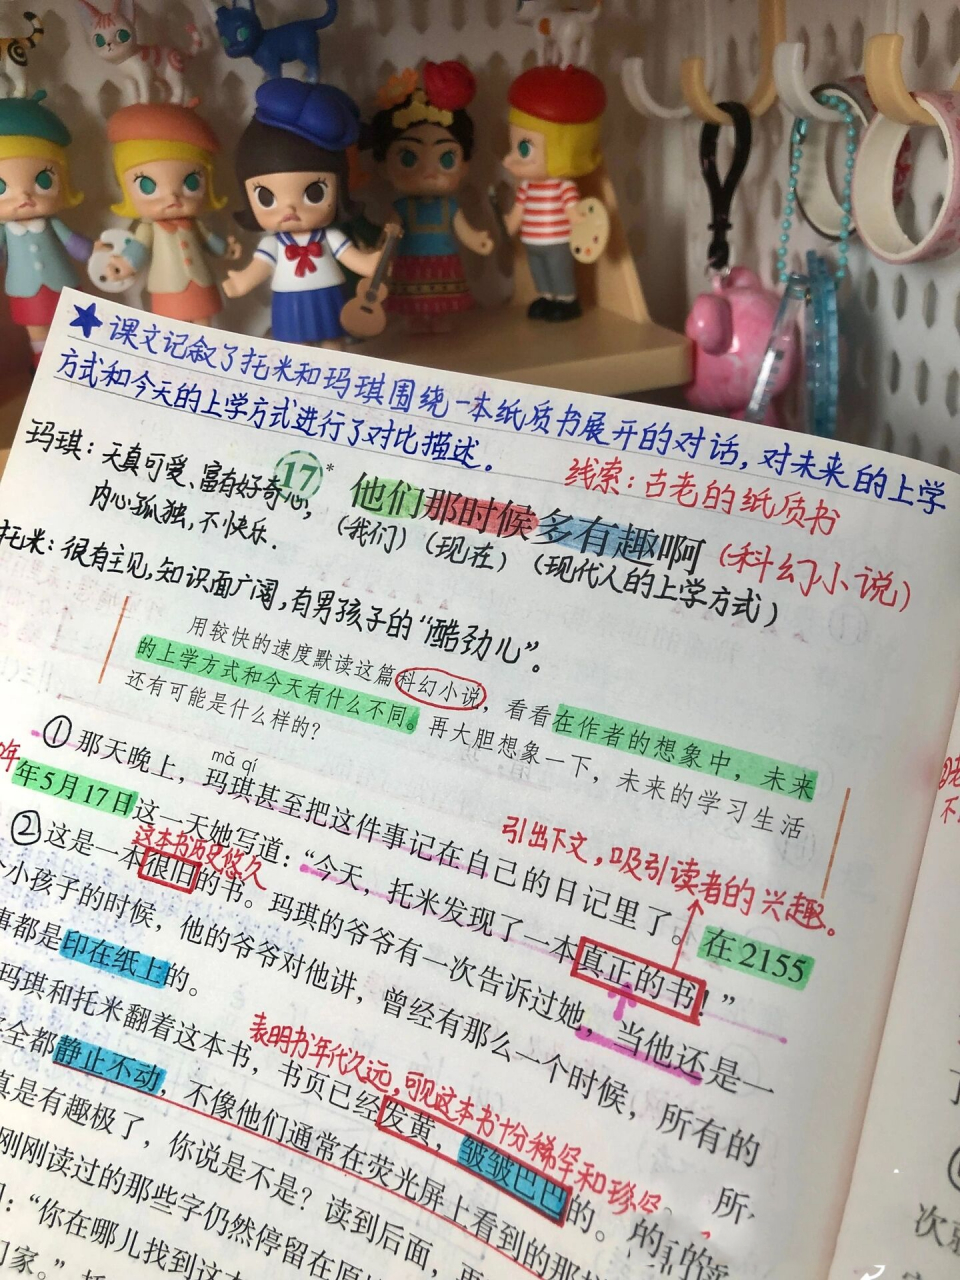 ★课文记叙了托米和玛琪围绕一本纸质书展开的对话,对未来的上学
方式和今天的上学方式进行了对比描述。
线索:古老的纸质书
玛琪:天真可爱、富有好奇心,
内心孤独,不快乐.
17* 他们那时候多有趣啊
(我们)(现在)(现代人的上学方式)
(科幻小说)
托米:很有主见,知识面广阔,有男孩子的“酷劲儿”。
用较快的速度默读这篇科幻小说,看看在作者的想象中,未来
的上学方式和今天有什么不同。再大胆想象一下,未来的学习生活
还有可能是什么样的?
mǎ qí
①那天晚上,玛琪甚至把这件事记在自己的日记里了。在2155
年5月17日这一天她写道:“今天,托米发现了一本真正的书!”
引出下文,吸引读者的兴趣。
这本书历史悠久
②这是一本很旧的书。玛琪的爷爷有一次告诉过她,当他还是一
个小孩子的时候,他的爷爷对他讲,曾经有那么一个时候,所有的
事都是印在纸上的。
表明书年代久远,可见这本书十分稀罕和珍
玛琪和托米翻着这本书,书页已经发黄,皱皱巴巴的。
全都静止不动,不像他们通常在荧光屏上看到的那样
真是有趣极了,你说是不是?读到后面,再
刚刚读过的那些字仍然停留在原
:“你在哪儿找到这本
家。”
次